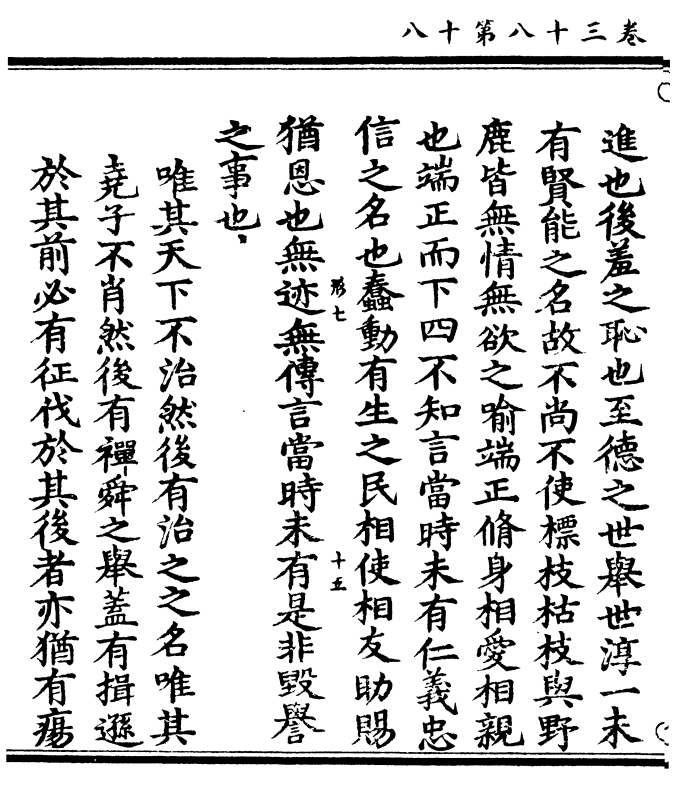 卷三十八第十八
進也後羞之恥也至德之世舉世淳一未
有賢能之名故不尚不使標枝枯枝與野
鹿皆無情無欲之喻端正脩身相愛相親
也端正而下四不知言當時未有仁義忠
信之名也蠢動有生之民相使相友助賜
猶恩也無迹無傳言當時未有是非毀譽
形七
十五
之事也
唯其天下不治然後有治之之名唯其
堯子不肖然後有禪舜之舉蓋有揖遜
於其前必有征伐於其後者亦猶有瘍